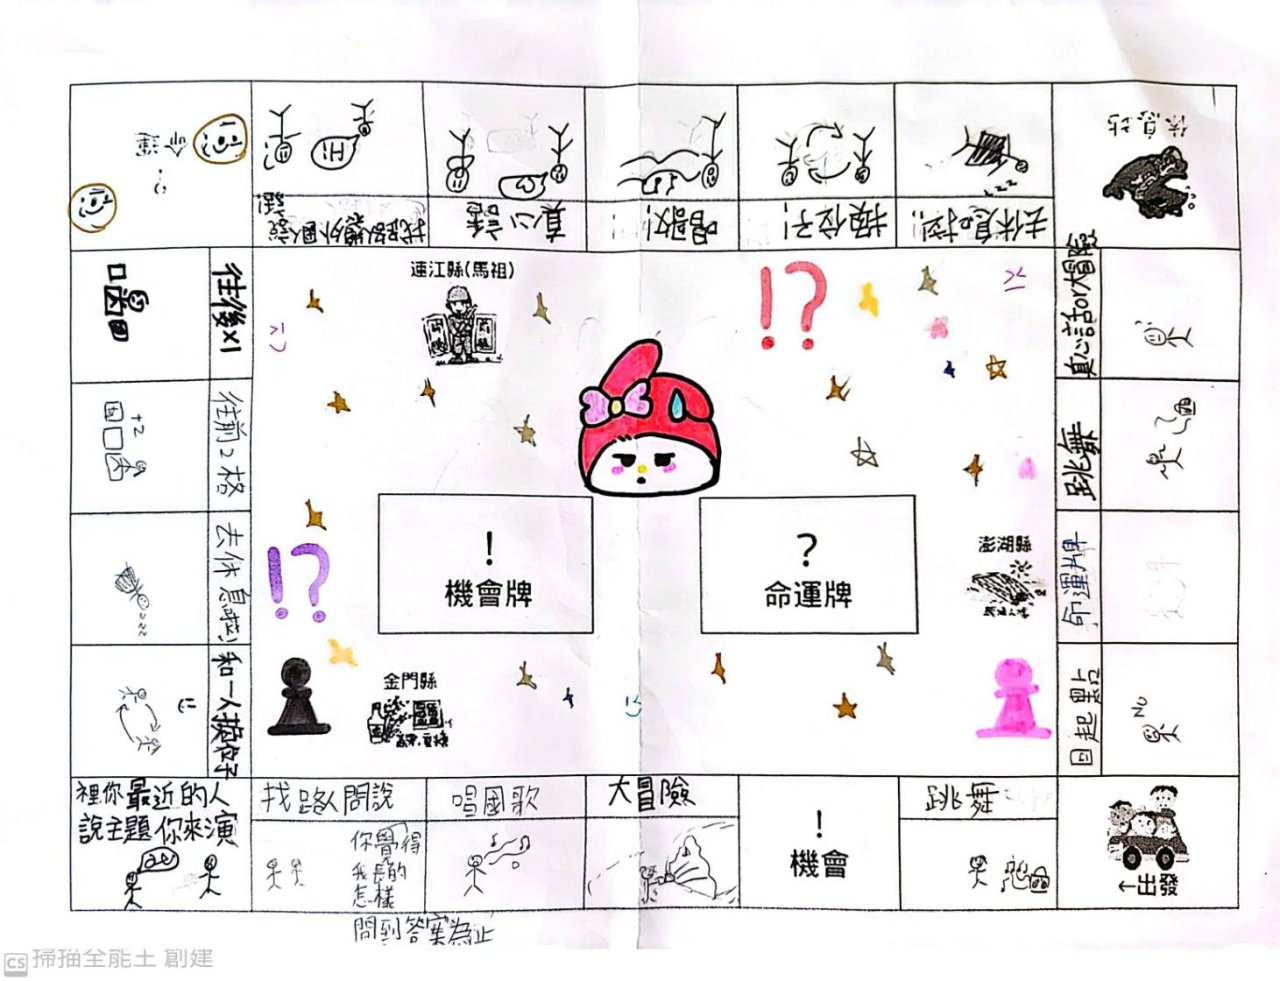 命運
找路人類外國人說
真心話
唱歌!
換位子!
去休息吧!!
休息站
往後x1
往前2格
+2
去休息啦!
zzz
和一人換位子
連江縣(馬祖)
!?
!
機會牌
?
命運牌
澎湖縣
!?
金門縣
真心話or大冒險
跳舞
命運牌
回起點
No
裡你最近的人
說主題你來演
找路人問說
你覺得
我長的
怎樣
問到答案為止
唱國歌
大冒險
!
機會
跳舞
←出發
CS 掃描全能王 創建